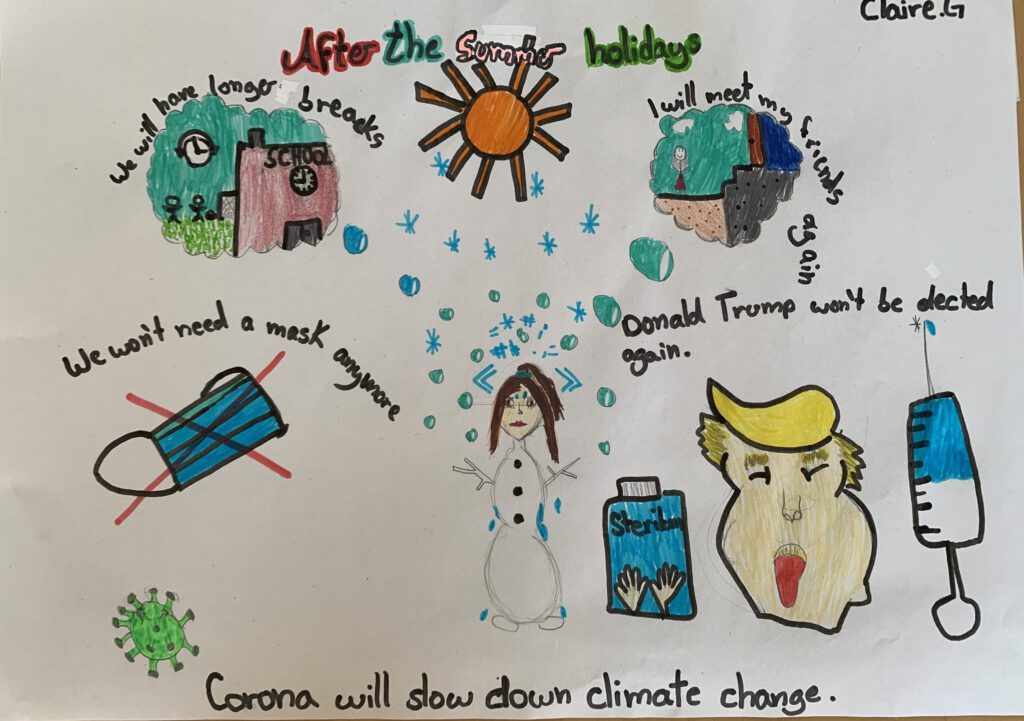 Claire.G
After the Summer holidays
We will have longer breacks
SCHOOL
I will meet my friends again
We won't need a mask anymore
Donald Trump won't be elected
again.
Corona will slow down climate change.